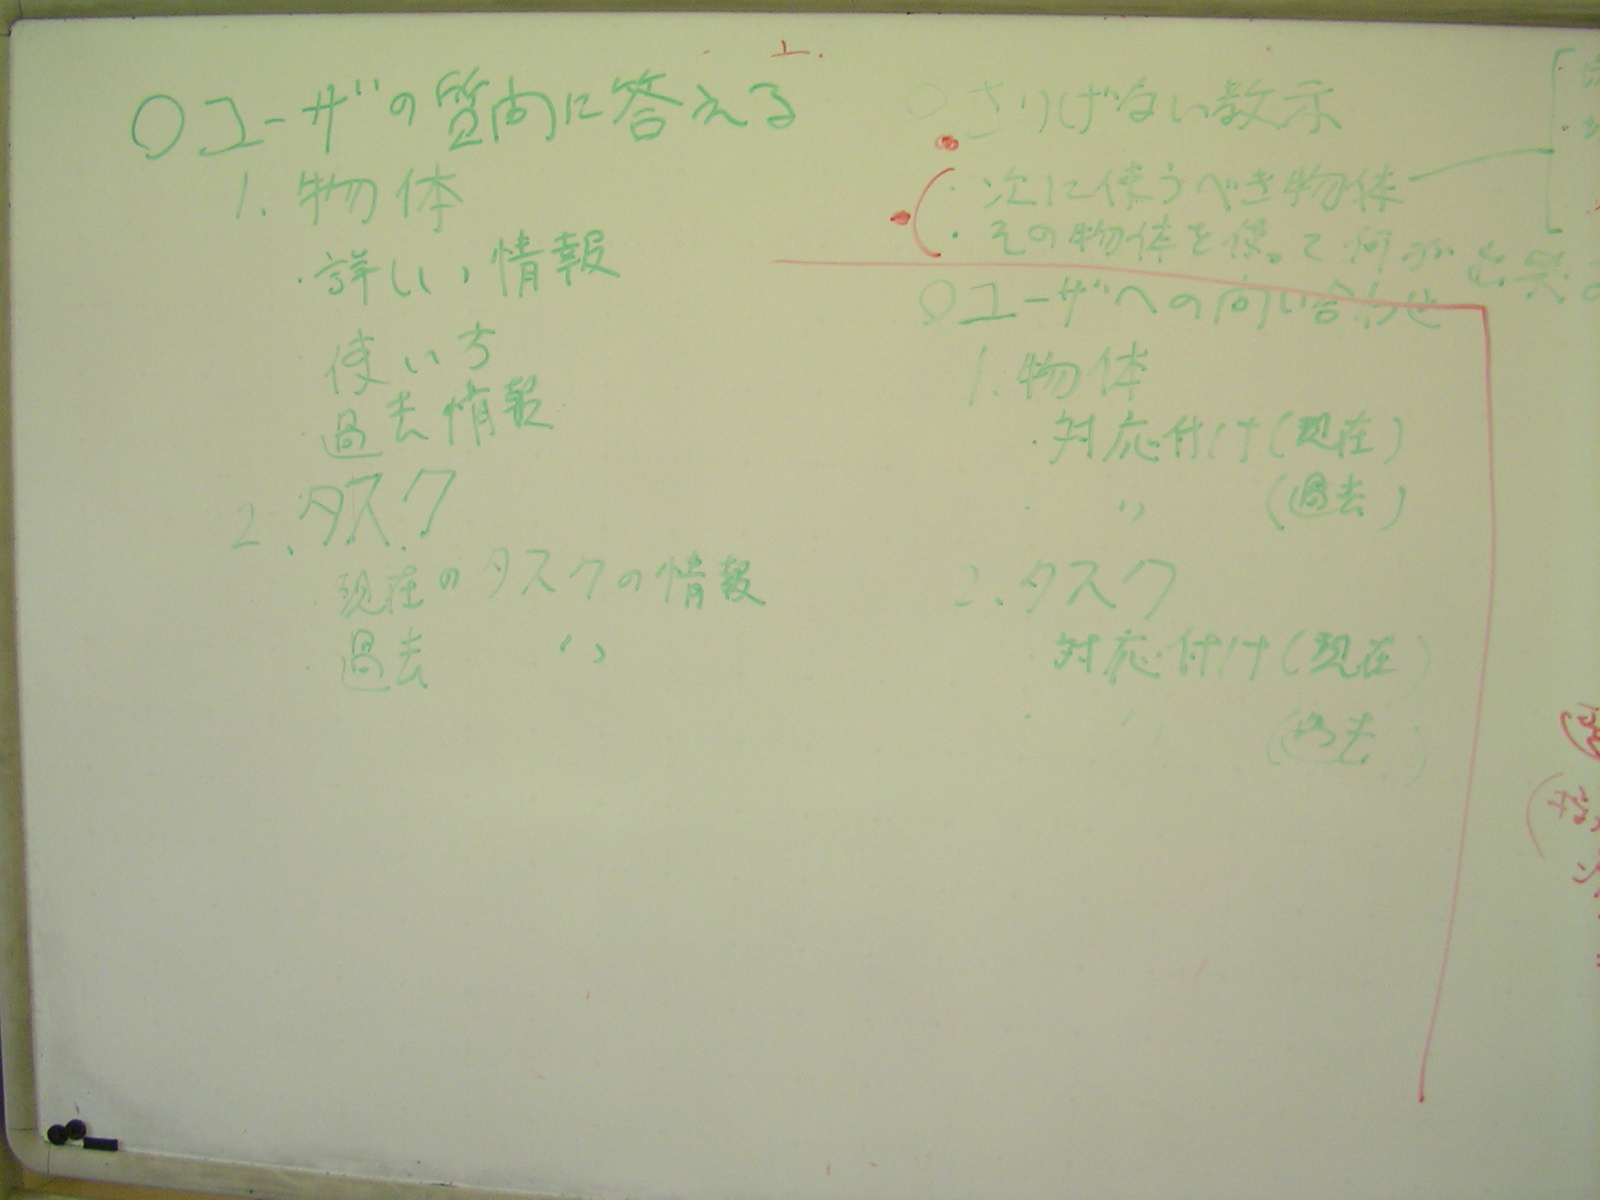 ○ユーザの質問に答える
1. 物体
・詳しい情報
・使い方
・過去情報
2. タスク
・現在のタスクの情報
・過去 〃
○さりげない教示
・次に使うべき物体
・その物体を使って何が出来る
○ユーザへの問い合わせ
1. 物体
・対応付け(現在)
・〃 (過去)
2. タスク
・対応付け(現在)
・〃 (過去)